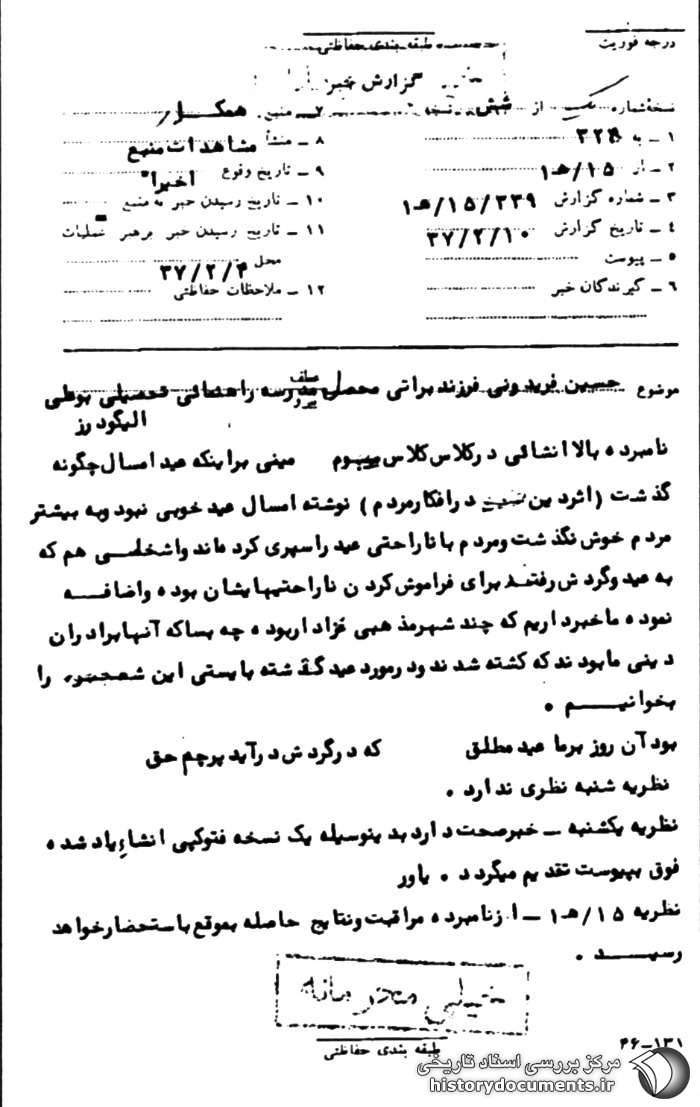 درجه فوریت
طبقه بندی حفاظتی
گزارش خبر
نسخهٔ شماره یک از شش نسخه
۱ ـ به ۳۲۴
۲ ـ از ۱۵/هـ۱
۳ ـ شماره گزارش ۳۳۹/۱۵/هـ۱
۴ ـ تاریخ گزارش ۳۷/۲/۱۰
۵ ـ پیوست
۶ ـ گیرندگان خبر
۷ ـ منبع همکار
۸ ـ منشأ مشاهدات منبع
۹ ـ تاریخ وقوع اخیراً
۱۰ ـ تاریخ رسیدن خبر به منبع
۱۱ ـ تاریخ رسیدن خبر برهبر عملیات
محل ۳۷/۲/۴
۱۲ ـ ملاحظات حفاظتی
موضوع حسین فریدونی فرزند براتی محصل مدرسه راهنمائی تحصیلی بوطی
الیگودرز
نامبرده بالا انشائی در کلاس کلاس سوم مبنی براینکه عید امسال چگونه
گذشت (اثر دین در افکار مردم) نوشته امسال عید خوبی نبود و به بیشتر
مردم خوش نگذشت و مردم با ناراحتی عید را سپری کرده اند و اشخاصی هم که
به عید و گردش رفتند برای فراموش کردن ناراحتیهایشان بوده و اضافه
نموده ما خبر داریم که چند شهر مذهبی عزادار بوده چه بسا که آنها برادران
دینی ما بودند که کشته شدند و در مورد عید گذشته بایستی این شعر را
بخوانیم .
بود آن روز بر ما عید مطلق که در گردش در آید پرچم حق
نظریه شنبه نظری ندارد .
نظریه یکشنبه ـ خبر صحت دارد بدینوسیله یک نسخه فتوکپی انشاء یاد شده
فوق بپیوست تقدیم میگردد . یاور
نظریه ۱۵/هـ۱ ـ از نامبرده مراقبت و نتایج حاصله بموقع باستحضار خواهد
رسید .
خیلی محرمانه
طبقه بندی حفاظتی
۴۶-۱۳۱
مرکز بررسی اسناد تاریخی
historydocuments.ir